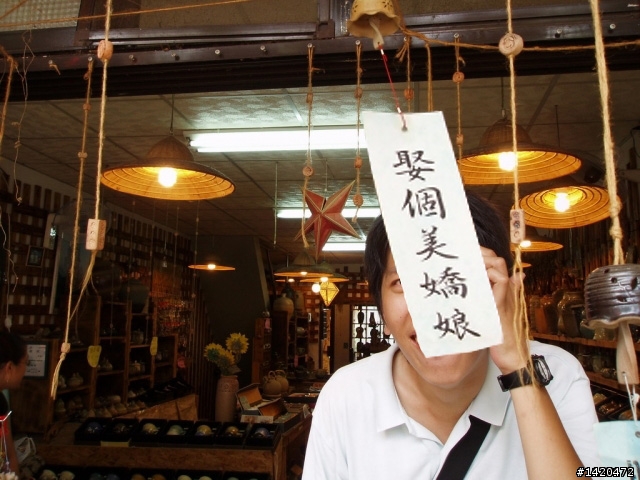 娶個美嬌娘
#1420472